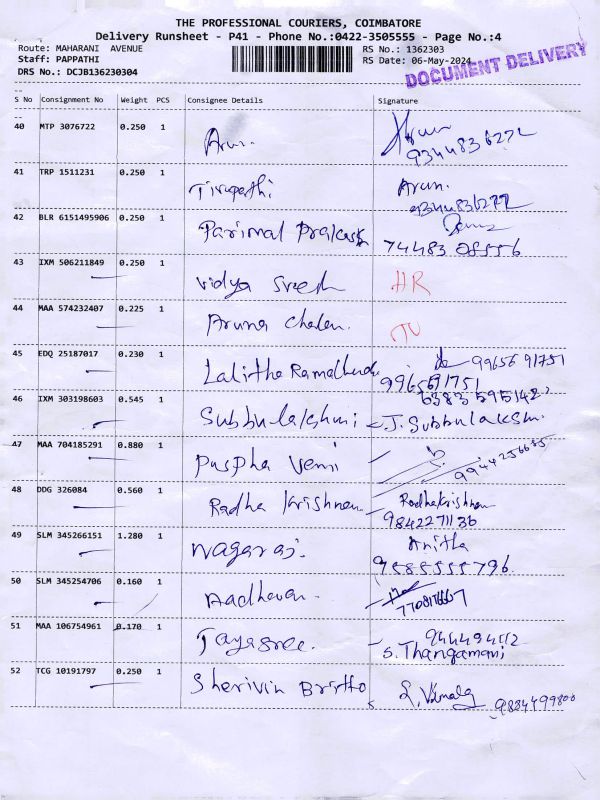 THE PROFESSIONAL COURIERS, COIMBATORE
Delivery Runsheet - P41 - Phone No.:0422-3505555 - Page No.:4
Route: MAHARANI AVENUE RS No.: 1362303
Staff: PAPPATHI RS Date: 06-May-2024
DRS No.: DCJB136230304
DOCUMENT DELIVERY
S No Consignment No Weight PCS Consignee Details Signature
40 MTP 3076722 0.250 1 Arun. Arun
9344836272
41 TRP 1511231 0.250 1 Tirupathi Arun.
9344836272
42 BLR 6151495906 0.250 1 Parimal Prakash
74483 08556
43 IXM 506211849 0.250 1 Vidya Sreesh HR
44 MAA 574232407 0.225 1 Aruna
45 EDQ 25187017 0.230 1 Lalitha 99656 91751
9965691751
46 IXM 303198603 0.545 1 Subbulakshmi J. Subbulaksm.
47 MAA 704185291 0.880 1 Puspha Veni
48 DDG 326084 0.560 1 Radha Krishnan RadhaKrishnan
9842271136
49 SLM 345266151 1.280 1 Nagaraj. Anitha
50 SLM 345254706 0.160 1 Aadhavan.
51 MAA 106754961 0.170 1 Jayasree.
S. Thangamani
52 TCG 10191797 0.250 1 Sherivin Britto
9884499800